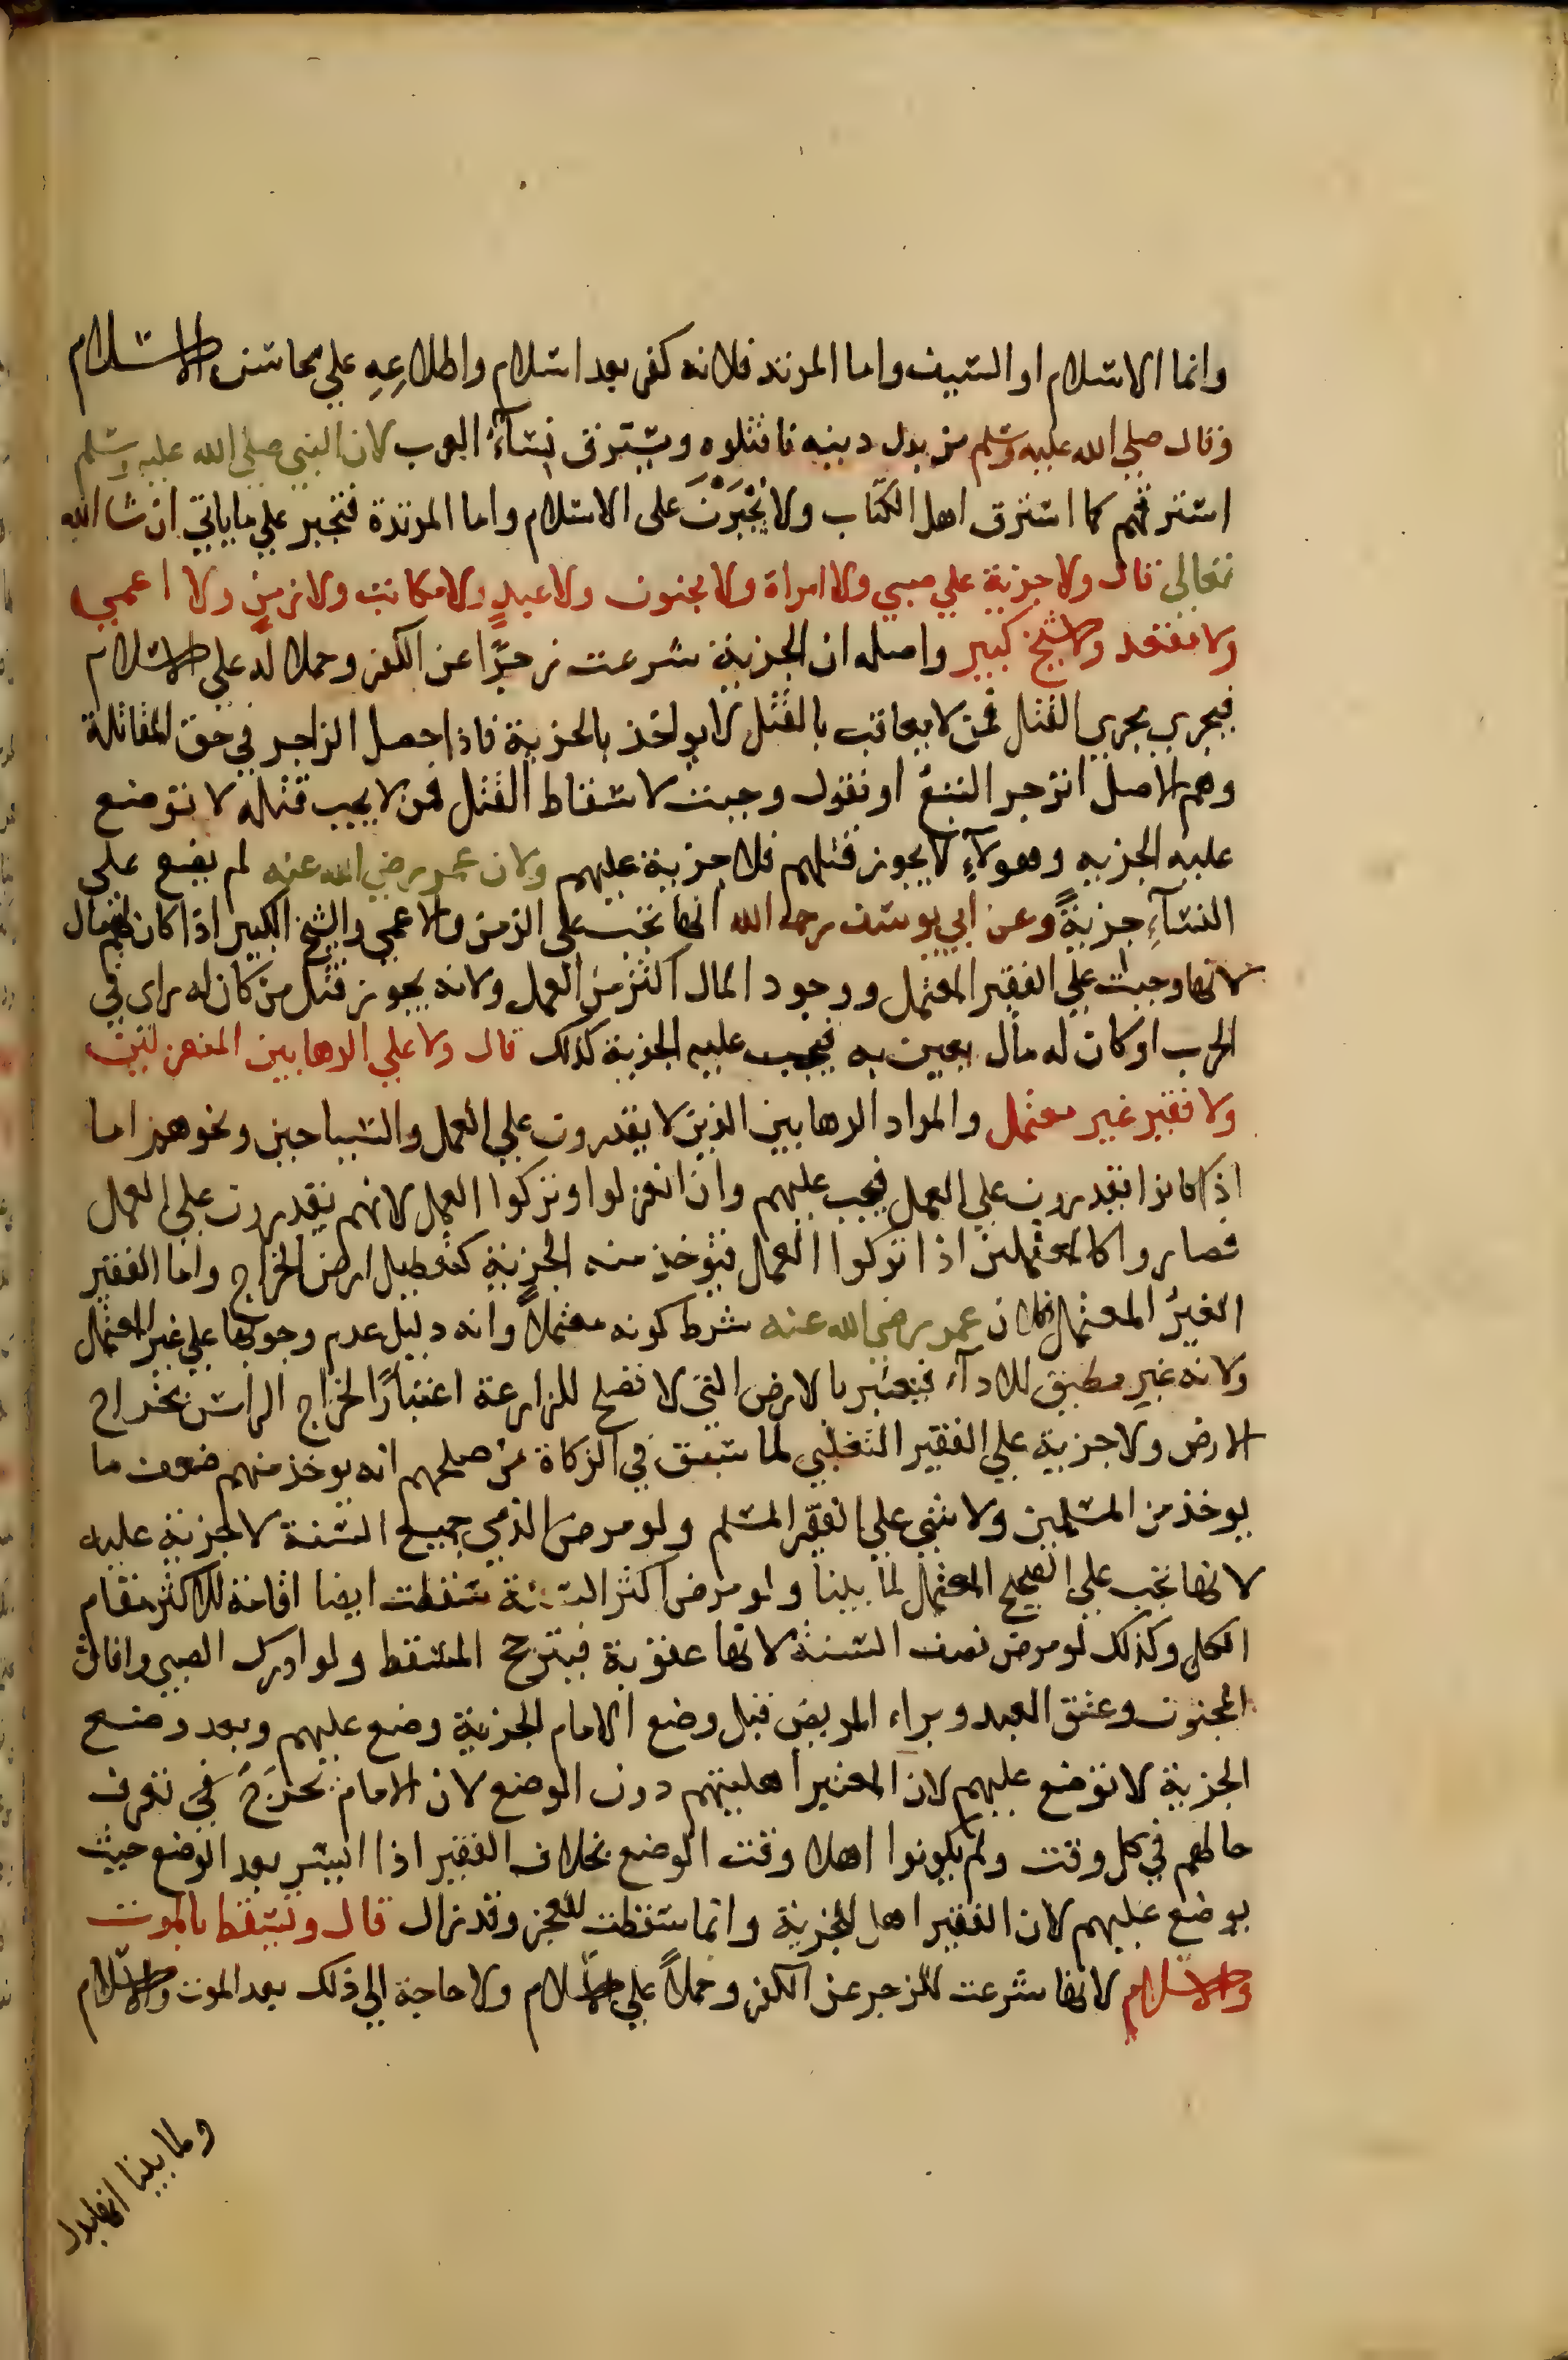 وانما الاسلام او السيف واما المرتد فلانه كفر بعد اسلام واطلاعِهِ علي محاسن الاسلام
وقال صلي الله عليه وسلم من بدل دينه فاقتلوه ويسترق نسآءُ العرب لان النبي صلي الله عليه وسلم
استرقهم كما استرق اهل الكتاب ولا يُجْبَرْنَ على الاسلام واما المرتدة فتجبر علي ما ياتي ان شا الله
تعالي قال ولا جزية علي صبي ولا امراة ولا مجنون ولا عبدٍ ولا مكاتب ولا زمنٍ ولا اعمي
ولا مقعد ولا شيخ كبير واصله ان الجزية شرعت زجرًا عن الكفر وحملا له علي الاسلام
فيجري مجري القتل فمن لا يعاقب بالقتل لا يواخذ بالجزية فاذا حصل الزاجر في حق المقاتلة
وهم الاصل انزجر التبعُ او نقول وجبت لاسقاط القتل فمن لا يجب قتله لا توضع
عليه الجزيه وهولآءِ لا يجوز قتلهم فلا جزية عليهم ولان عمر رضي الله عنه لم يضع علي
النسآءِ جزيةً وعن ابي يوسف رحمه الله انها تجب على الزمن والاعمي والشيخ الكبير اذا كان لهم مال
لانها وجبت علي الفقير المعتمل ووجود المال اكثر من العمل ولانه يجوز قتل من كان له راى في
الحرب او كان له مال يعين به فيجب عليه الجزية كذلك قال ولا علي الرهابين المنعزلين
ولا فقير غير معتمل والمراد الرهابين الذين لا يقدرون علي العمل والسياحين ونحوهم اما
اذا كانوا يقدرون علي العمل فيجب عليهم وان انعزلوا وتركوا العمل لانهم يقدرون علي العمل
فصاروا كالمعتملين اذا تركوا العمل فتوخذ منه الجزية كتعطيل ارض الخراج واما الفقير
الغيرُ المعتمل فلان عمر رضي الله عنه شرط كونه معتملاً وانه دليل عدم وجوبها علي غير المعتمل
ولانه غير مطيق للادآء فيعتبر بالارض التي لا تصلح للزارعة اعتبارًا لخراج الراس بخراج
الارض ولا جزية علي الفقير التغلبي لما سبق في الزكاة من صلحهم انه يوخذ منهم ضعف ما
يوخذ من المسلمين ولا شي علي الفقير المسلم ولو مرض الذمي جميع السنة لا جزية عليه
لانها تجب علي الصحيح المعتمل لما بينا ولو مرض اكثر السنة سقطت ايضا اقامة للاكثر مقام
الكل وكذلك لو مرض نصف السنة لانها عقوبة فيترجح المسقط ولو ادرك الصبي وافاق
المجنون وعتق العبد وبراء المريض قبل وضع الامام الجزية وضع عليهم وبعد وضع
الجزية لا توضع عليهم لان المعتبر اهليتهم دون الوضع لان الامام يحرج في تعرف
حالهم في كل وقت ولم يكونوا اهلا وقت الوضع بخلاف الفقير اذا ايسر بعد الوضع حيث
يوضع عليهم لان الفقير اهل للجزية وانما سقطت للعجز وقد زال قال وتسقط بالموت
والاسلام لانها شرعت للزجر عن الكفر وحملاً علي الاسلام ولا حاجة الي ذلك بعد الموت والاسلام
ولما بينا انها بدل